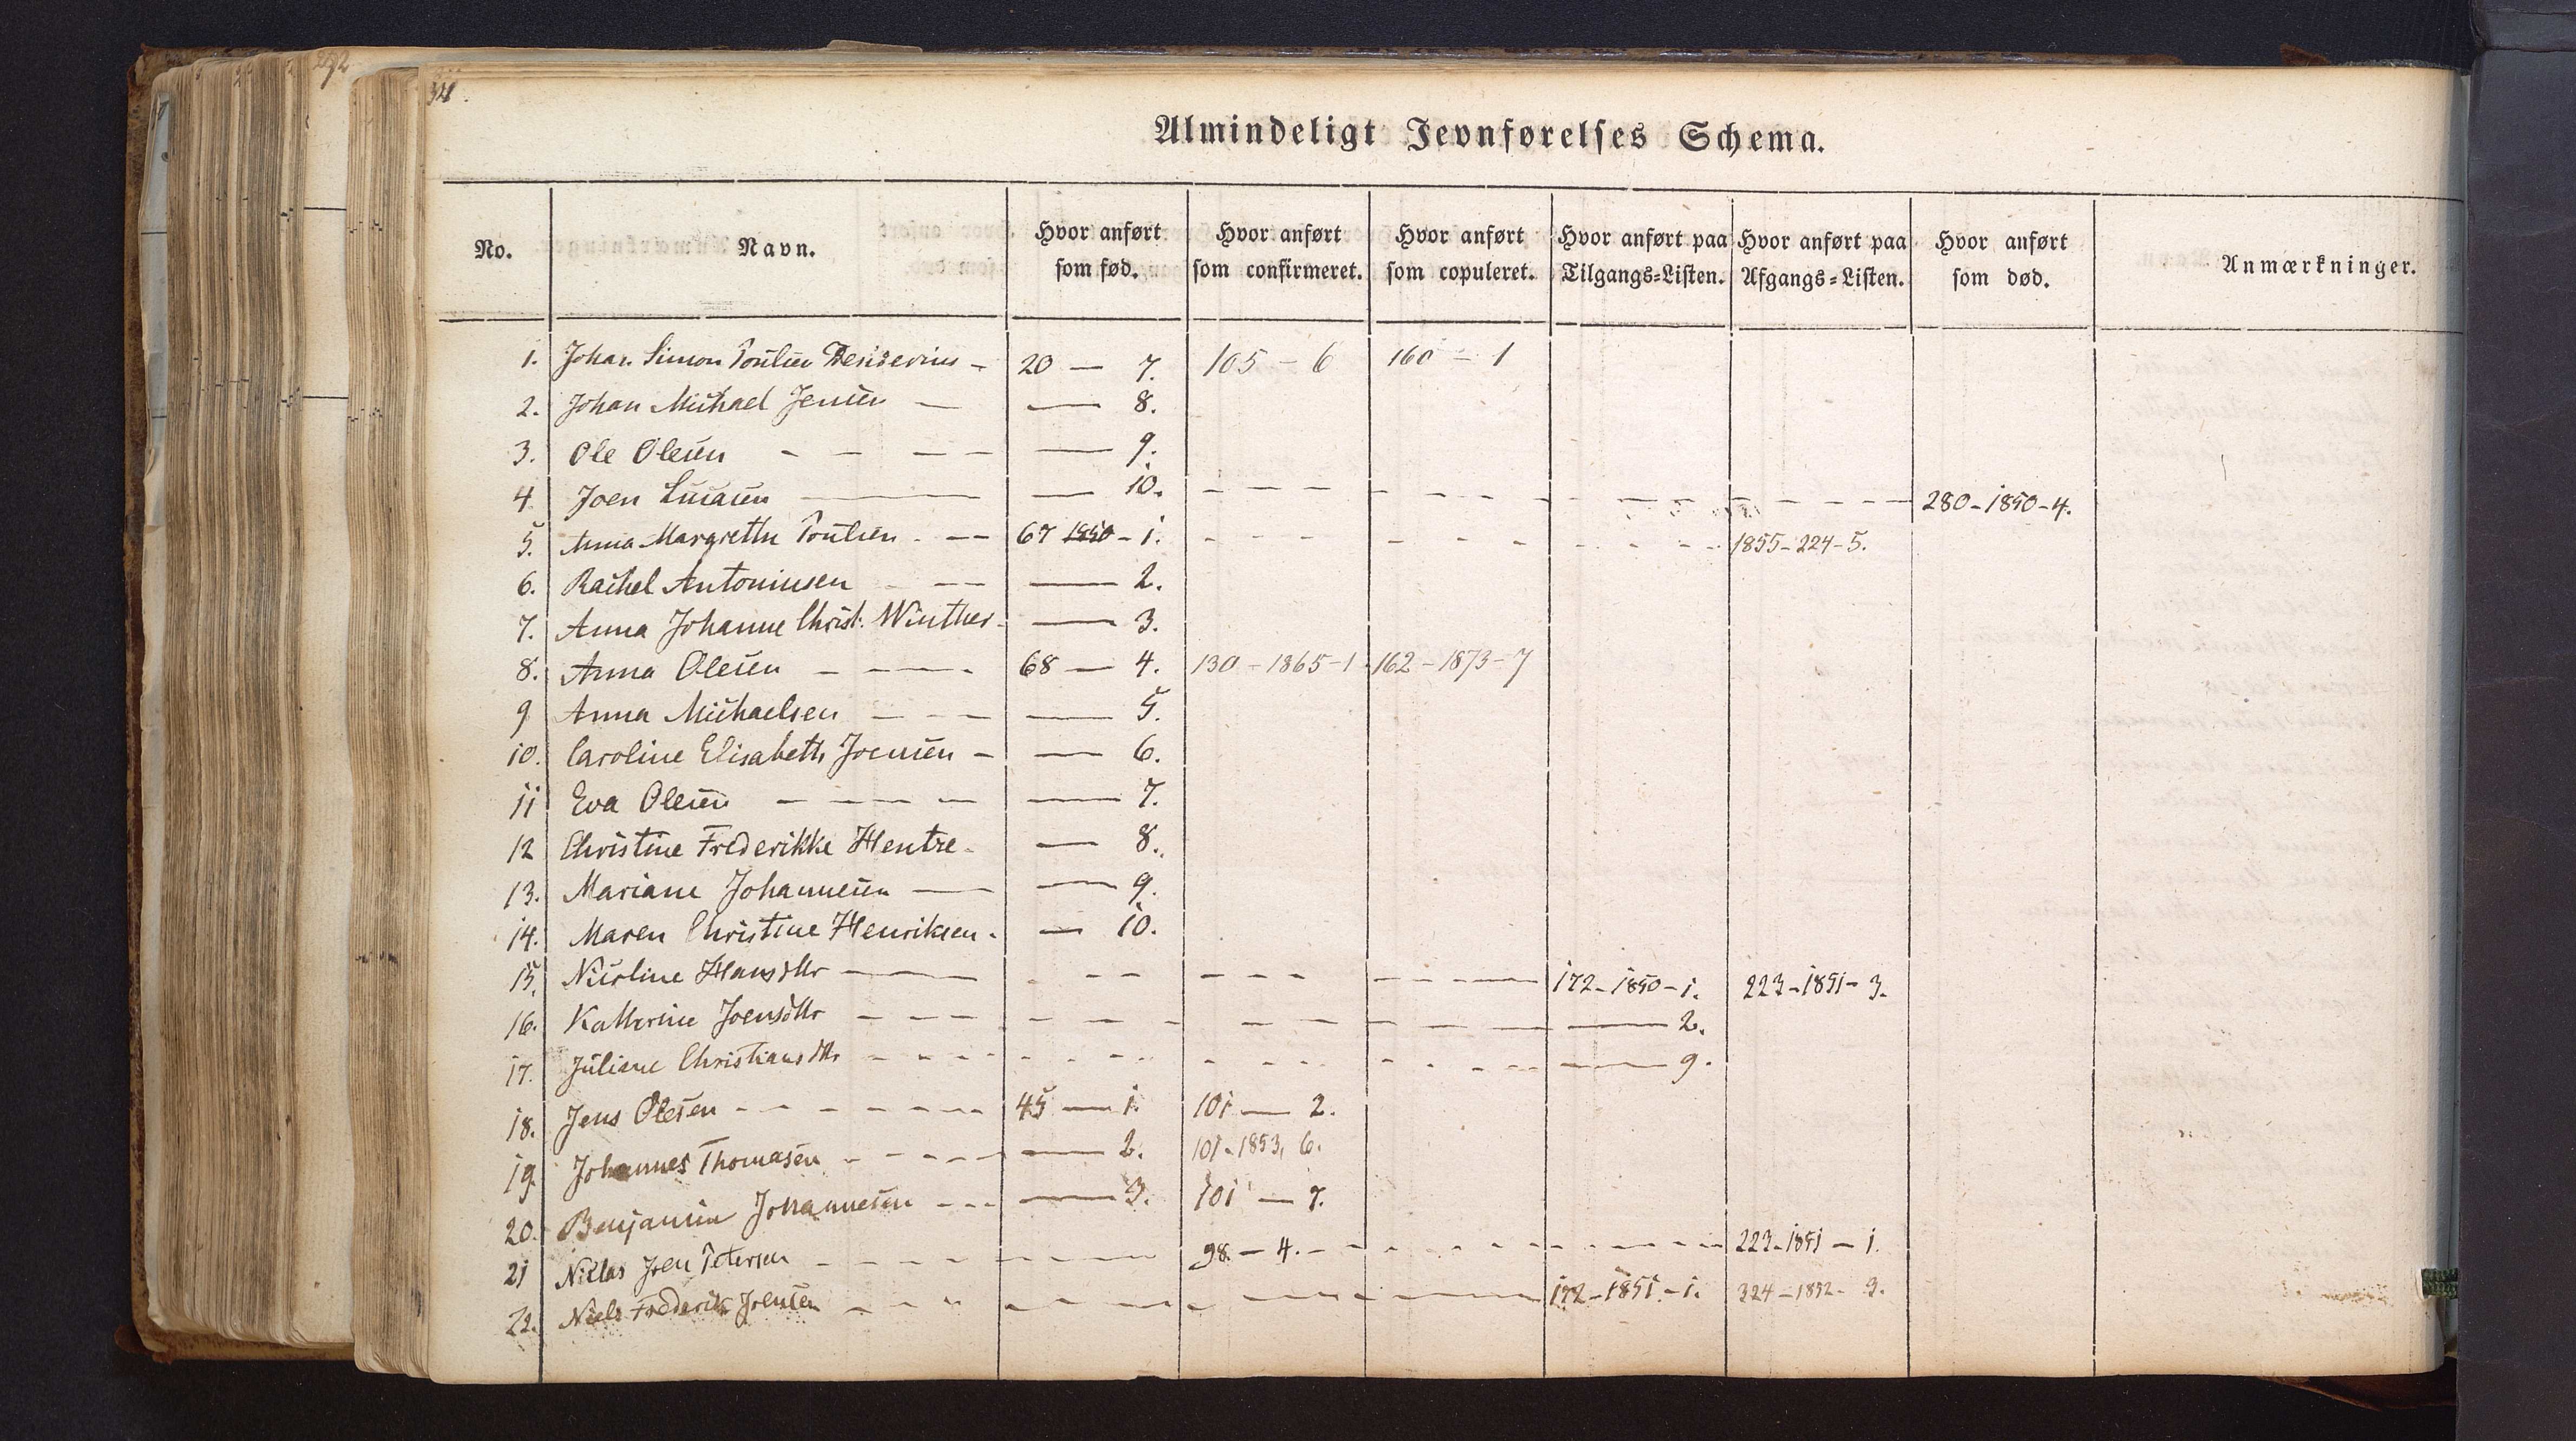 Almindeligt Jevnførelses Schema.
No. Navn. Hvor anført som fød. Hvor anført som confirmeret. Hvor anført som copuleret. Hvor anført paa Tilgangs-Listen. Hvor anført paa Afgangs-Listen. Hvor anført som død. Anmærkninger.
1. Johan Simon Poulsen Desiderius - 20 — 7. 105 - 6 160 - 1
2. Johan Michael Jensen — — 8.
3. Ole Olesen - - - - — 9.
4 Joen Lucasen — — 10. - - - - - - - - - - - - - - - - 280-1850-4.
5. Anna Margrethe Poulsen - — 67 1850 - 1. - - - - - - - - - - 1855-224-5.
6. Rachel Antoniusen — — — 2.
7. Anna Johanne Christ. Winther - — 3.
8. Anna Olesen - — - 68 — 4. 130 - 1865-1 162 - 1873-7
9 Anna Michaelsen - - - — 5.
10. Caroline Elisabeth Joensen - — 6.
11 Eva Olesen - - - - — 7.
12 Christine Frederikke Hentze - — 8.
13. Mariane Johannesen — — 9.
14. Maren Christine Henriksen - — 10.
15. Nicoline Hansdttr — - - - - - - - - - — 172-1850-1. 223-1851-3.
16. Kathrine Joensdttr - - - - - - - - - - - - - — 2.
17. Juliane Christiansdttr - - - - - - - - - - - - - - — 9.
18. Jens Olesen - - - - - - 45 — 1. 101 — 2.
19. Johannes Thomasen - - - - — 2. 101-1853, 6.
20. Benjamin Johannesen - - - — 3. 101 — 7.
21 Niclas Joen Petersen - - - - - - - 98. - 4. - - - - - - - - - 223-1851 - 1.
22. Niels Frederik Joensen - - - - - - - - - - - 172-1851-1. 224-1852-3.